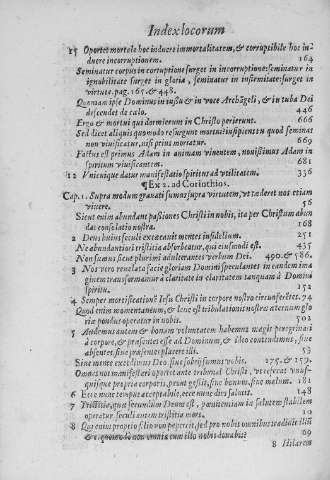 Index locorum
15 Oportet mortale hoc induere immortalitatem, & corruptibile hoc in-
duere incorruptionem. 164
Seminatur corpus in corruptione surget in incorruptione: seminatur in
ignobilitate surget in gloria, seminatur in infirmitate: surget in
virtute. pag. 167. & 448.
Quoniam ipse Dominus in iussu & in voce Archãgeli, & in tuba Dei
descendet de cælo. 446
Ergo & mortui qui dormierunt in Christo perierunt. 666
Sed dicet aliquis quomodo resurgunt mortui insipiens tu quod seminas
non viuificatur, nisi prius moriatur. 669
Factus est primus Adam in animam viuentem, nouissimus Adam in
spiritum viuificantem. 681
12 Vnicuique datur manifestatio spiritus ad vtilitatem. 336
¶ Ex 2. ad Corinthios.
Cap. 1. Supra modum grauati sumus supra virtutem, vt tæderet nos etiam
viuere. 56
Sicut enim abundant passiones Christi in nobis, ita per Christum abun
dat consolatio nostra. 168
2 Deus huius seculi excæcauit mentes infidelium. 251
Ne abundantiori tristitia absorbeatur, qui eiusmodi est. 435
Non sumus sicut plurimi adulterantes verbum Dei. 490. & 586.
3 Nos vero reuelata facie gloriam Domini speculantes in eandem ima
ginem transformamur à claritate in claritatem tanquam à Domini
spiritu. 152
4 Semper mortificationẽ Iesu Christi in corpore nostro circunferẽtes. 74
Quod enim momentaneum, & leue est tribulationis nostræ æternum glo
riæ pondus operatur in nobis. 502
5 Audemus autem & bonam voluntatem habemus magis peregrinari
à corpore, & præsentes esse ad Dominum, & ideo contendimus, siue
absentes, siue præsentes placere illi. 53
Siue mente excedimus Deo, siue sobrij sumus vobis. 175. & 159.
Omnes nos manifestari oportet ante tribunal Christi, vt referat vnus-
quisque propria corporis, prout gessit, siue bonum, siue malum. 181
6 Ecce nunc tempus acceptabile, ecce nunc dies salutis. 148
7 Tristitia, quæ secundum Deum est, pœnitentiam in salutem stabilem
operatur seculi autem tristitia mors. 10
8 Qui enim proprio filio non pepercit, sed pro nobis omnibus tradidit illũ
& quomodo non omnia cum illo nobis donabit? 69
8 Hilarem